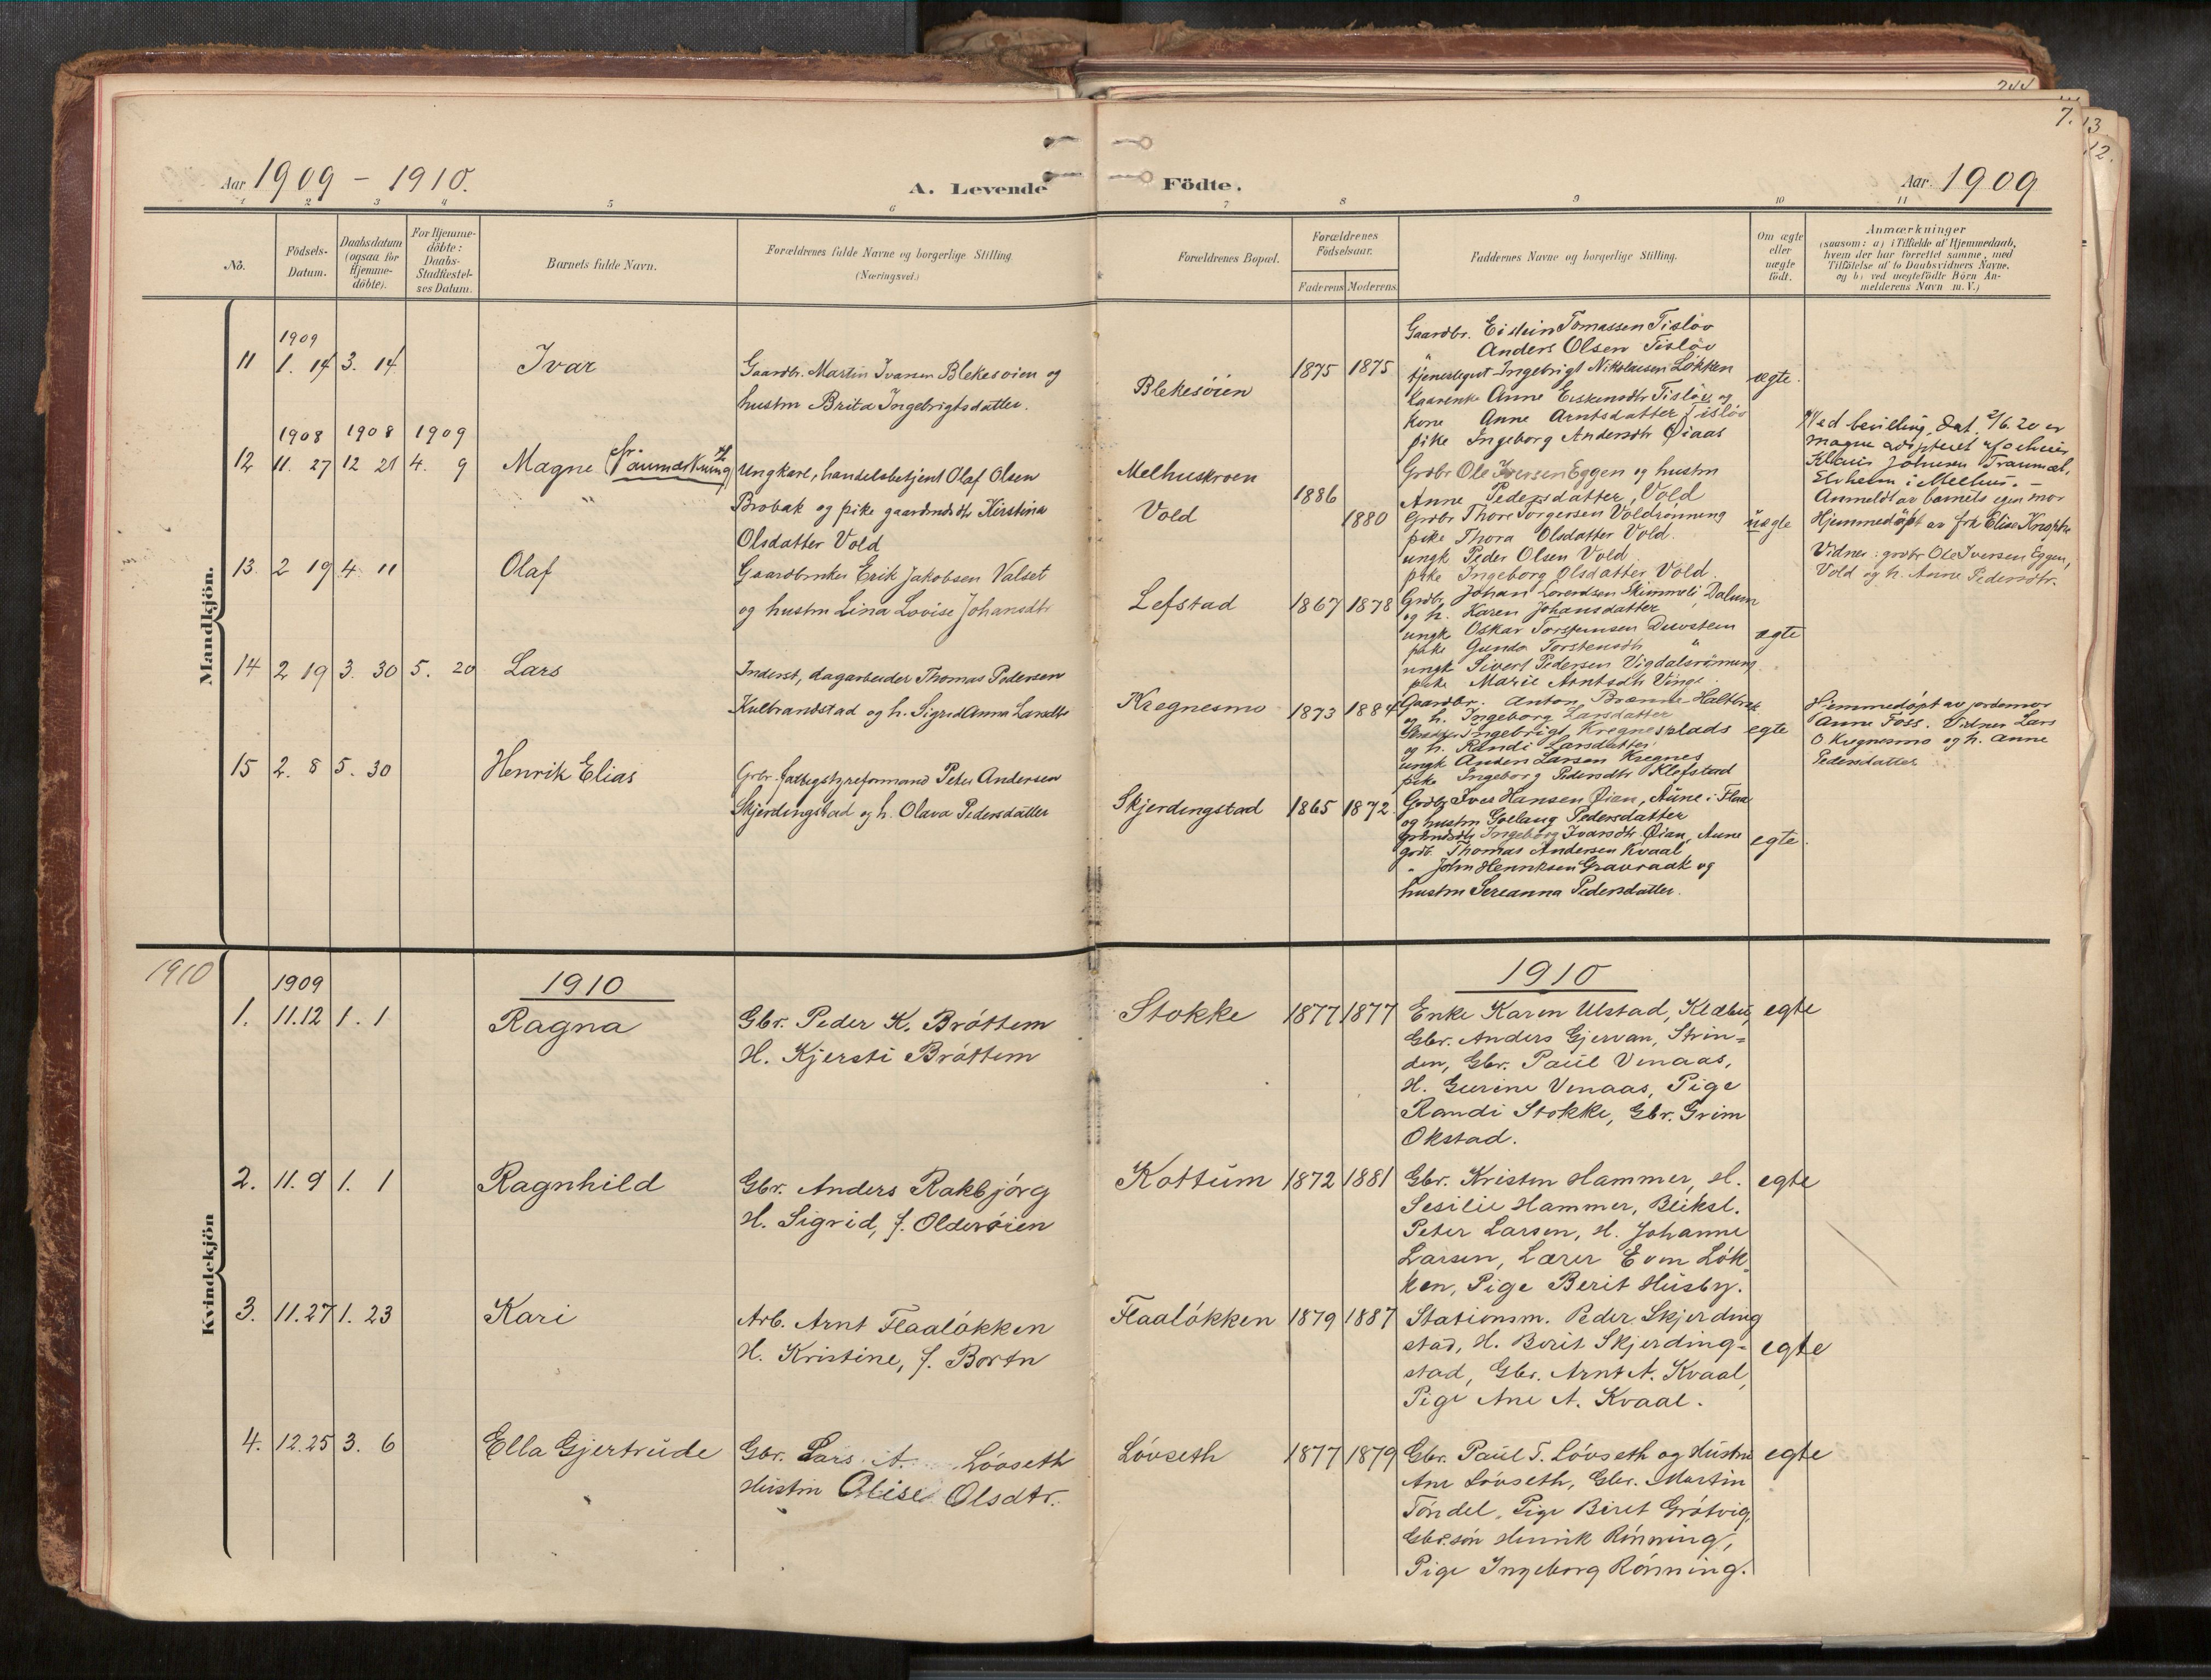 7.
13
12.
Aar 1909 - 1910.
A. Levende Födte.
Aar 1909
1 2 3 4 5 6 7 8 9 10 11
No.
Födsels-
Datum.
Daabsdatum
(ogsaa for
Hjemme-
döbte).
For Hjemme-
döbte:
Daabs-
Stadfæstel-
ses Datum.
Barnets fulde Navn.
Forældrenes fulde Navne og borgerlige Stilling
(Næringsvei.)
Forældrenes Bopæl.
Forældrenes
Födselsaar.
Faderens Moderens
Faddernes Navne og borgerlige Stilling.
Om ægte
eller
uægte
födt.
Anmærkninger
(saasom: a) i Tilfælde af Hjemmedaab,
hvem der har forrettet samme, med
Tilföielse af to Daabsvidners Navne,
og b) ved uægtefödte Börn An-
melderens Navn m. V.)
Mandkjön.
1909
11 1. 14 3. 14
Ivar
Gaardbr. Martin Ivarsen Blekesøien og
hustru Brita Ingebrigtsdatter.
Blekesöien
1875 1875
Gaardbr. Eistein Tomassen Tisløv
" Anders Olsen Tisløv
tjenestegut Ingebrigt Nikolaisen Løkken
Anne Tisløv og
kone Anne Arntsdatter Tisløv
pike Ingeborg Andersdtr Øiaas
ægte.
1908 1908 1909
12 11. 27 12 21 4. 9
Magne
Ungkarl, handelsbetjent Olaf Olsen
Brobak og pike gaardmdtr Kirstina
Olsdatter Vold
Melhuskroen
Vold
1886
1880
Grdbr Ole Iversen Eggen og hustru
Anne Pedersdatter, Vold
Grdbr Thore Torgersen Voldrønning
pike Thora Olsdatter Vold.
ungk Peder Olsen Vold
pike Ingeborg Olsdatter Vold.
uægte
Ved bevilling dat. 2/6.20 er
Magne adopteret af
Johnsen
i Melhus. -
Anmeldt av barnets egen mor
Hjemmedøpt av frk Elise
Vidner: grdbr Ole Iversen Eggen,
Vold og h. Anne Pedersdtr.
13. 2 19 4. 11
Olaf
Gaardbruker Erik Jakobsen Valset
og hustru Lina Lovise Johansdtr
Lefstad
1867 1878
Grdbr. Johan Lorendsen Skimmeli, Dalum
og h. Karen Johansdatter
ungk Oskar Torstensen
pike Gunda Torstensdtr "
ungk Sivert Pedersen Vigdalsrønning
pike Marie Arntsdtr Vinge
ægte
14 2 19 3. 30 5. 20
Lars
Inderst, dagarbeider Thomas Pedersen
Kulbrandstad og h. Sigrid Anna Larsdtr
Kregnesmo
1873 1884
Gaardbr. Anton
og h. Ingeborg Larsdatter
Ingebrigt Kregnesplads
og h. Randi Larsdatter
ungk Anders Larsen Kregnes
pike Ingeborg Pedersdtr Klefstad
egte
Hjemmedøpt av jordemor
Anne Foss. Vidner Lars
O Kregnesmo og h. Anne
Pedersdatter
15 2. 8 5. 30
Henrik Elias
Grbr. fattigstyreformand Peter Andersen
Skjerdingstad og h. Olava Pedersdatter
Skjerdingstad
1865 1872.
Grdbr Iver Hansen Øien, Aune i Flaa
og hustru Gollaug Pedersdatter
grdmdtr Ingeborg Ivarsdtr. Øian, Aune
grdbr. Thomas Andersen Kvaal
" John Henriksen Gravraak og
hustru Sereanna Pedersdatter.
egte.
Kvindekjön
1910
1909
1910
1910
1. 11.12 1. 1
Ragna
Gbr. Peder K. Bróttem
H. Kjersti Bróttem
Stokke
1877 1877
Enke Karen Ulstad, Klæbu,
Gbr. Anders Gjervan, Strin-
den, Gbr. Paul Venaas,
H. Gurine Venaas, Pige
Randi Stokke, Gbr. Grim
Okstad.
egte
2. 11.9 1. 1
Ragnhild
Gbr. Anders Rakbjórg
H. Sigrid, f. Olderóien
Kottum
1872 1881
Gbr. Kristen Hammer, H.
Sesilie Hammer, Bliksl.
Peter Larsen, H. Johanne
Larsen, Lærer Even Lók-
ken, Pige Berit Husby.
egte
3. 11.27 1. 23
Kari
Arb. Arnt Flaalókken
H. Kristine, f. Bortn
Flaalókken
1879 1887
Stationsm. Peder Skjerding
stad, H. Berit Skjerding-
stad, Gbr. Arnt A. Kvaal,
Pige Ane A. Kvaal.
egte
4. 12.25 3. 6
Ella Gjertrude
Gbr. Lars A. Lóvseth
Hustru Olise Olsdtr.
Lóvseth
1877 1879
Gbr. Paul T. Lóvseth og Hustru
Ane Lóvseth, Gbr. Martin
Tóndel, Pige Beret Grótvig,
Gbr.són Henrik Rónning,
Pige Ingeborg Rónning.
egte